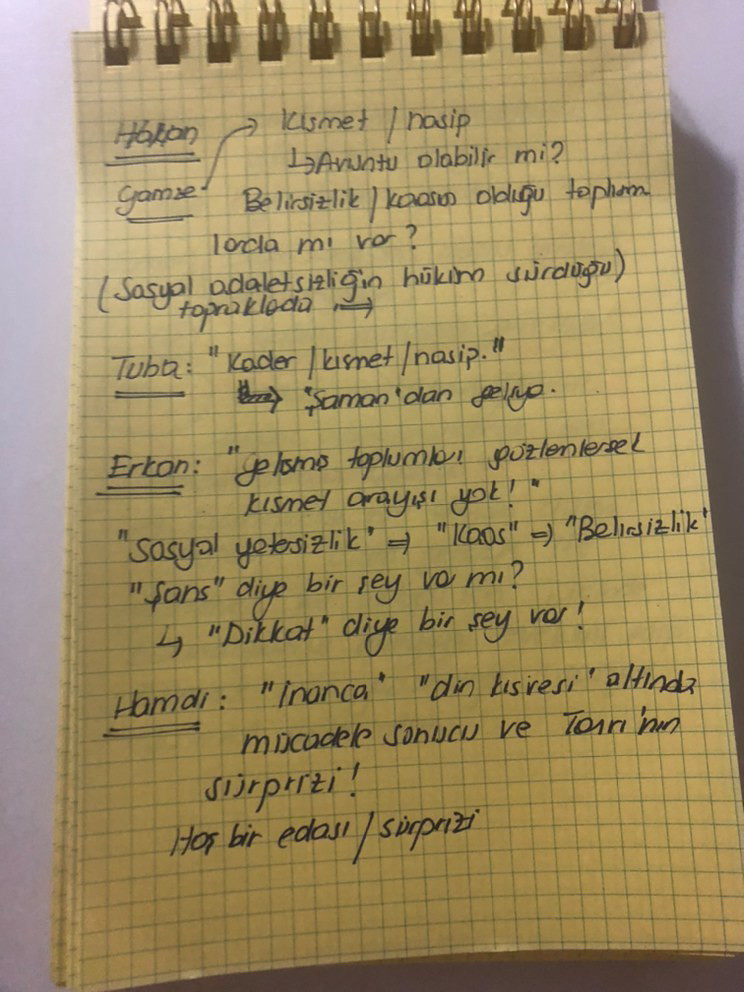 Hakan → kısmet / nasip
↳ Avuntu olabilir mi?
Gamze Belirsizlik / kaosun olduğu toplum
larda mı var?
(Sosyal adaletsizliğin hüküm sürdüğü)
topraklada ⇒
Tuba: "Kader / kısmet / nasip."
⇒ 'Şaman'dan geliyo.
Erkan: "gelişmiş toplumları gözlenlersek
kısmet arayışı yok!"
"Sosyal yetersizlik" ⇒ "Kaos" ⇒ "Belirsizlik"
"Şans" diye bir şey va mı?
↳ "Dikkat" diye bir şey var!
Hamdi: "inanca" "din" altında
mücadele sonucu ve Tanrı'nın
sürprizi!
Hoş bir edası / sürprizi